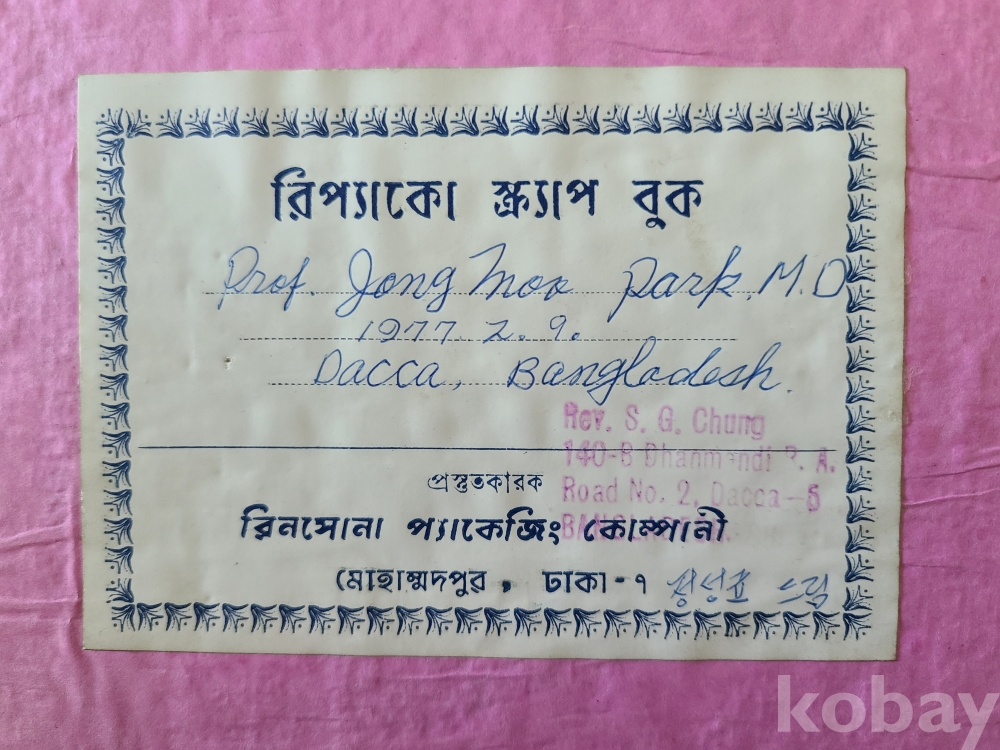 রিপ্যাকো স্ক্র্যাপ বুক
Prof. Jong Moo Park, M.D
1977. 2. 9.
Dacca, Bangladesh.
Rev. S. G. Chung
140-B Dhanmandi R. A.
Road No. 2, Dacca-5
প্রস্তুতকারক
রিনসোনা প্যাকেজিং কোম্পানী
মোহাম্মদপুর, ঢাকা-৭
드림
kobay